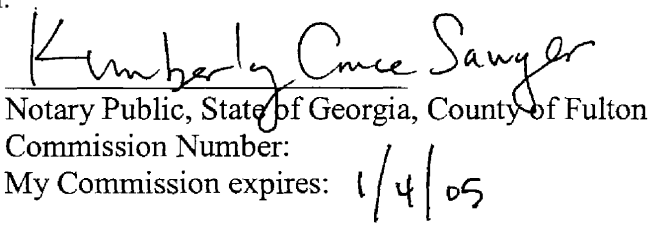 Kimberly Cruce Sawyer
Notary Public, State of Georgia, County of Fulton
Commission Number:
My Commission expires: 1/4/05